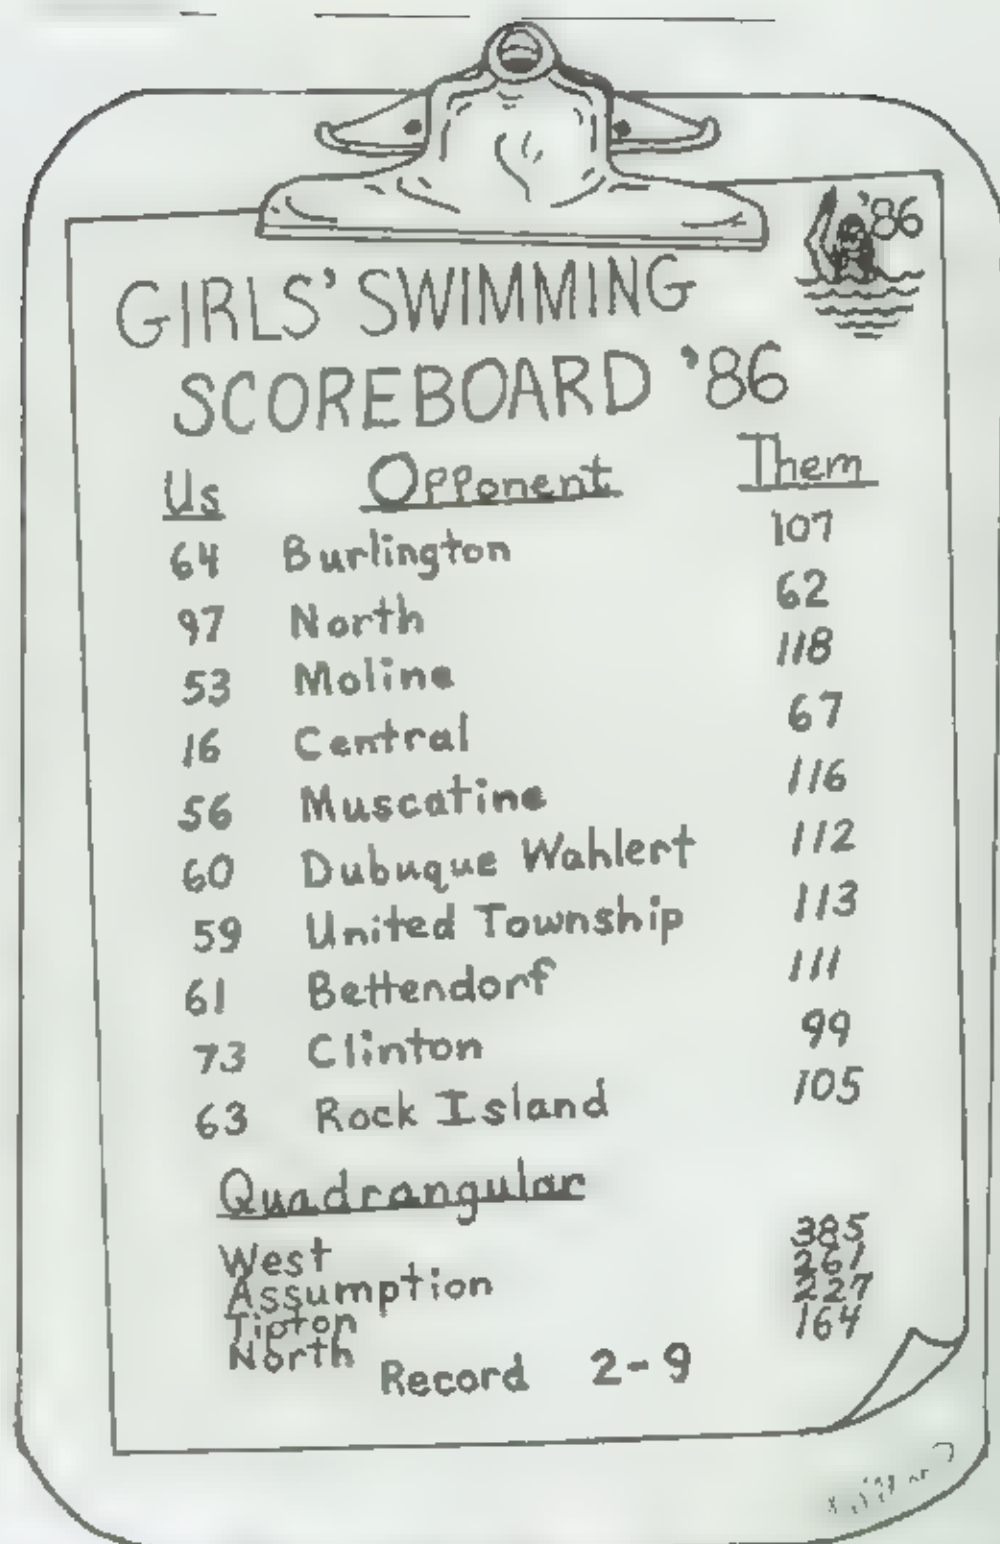 '86
GIRLS' SWIMMING
SCOREBOARD '86
Us Opponent Them
64 Burlington 107
97 North 62
53 Moline 118
16 Central 67
56 Muscatine 116
60 Dubuque Wahlert 112
59 United Township 113
61 Bettendorf 111
73 Clinton 99
63 Rock Island 105
Quadrangular
West 385
Assumption 261
Tipton 227
North 164
Record 2-9